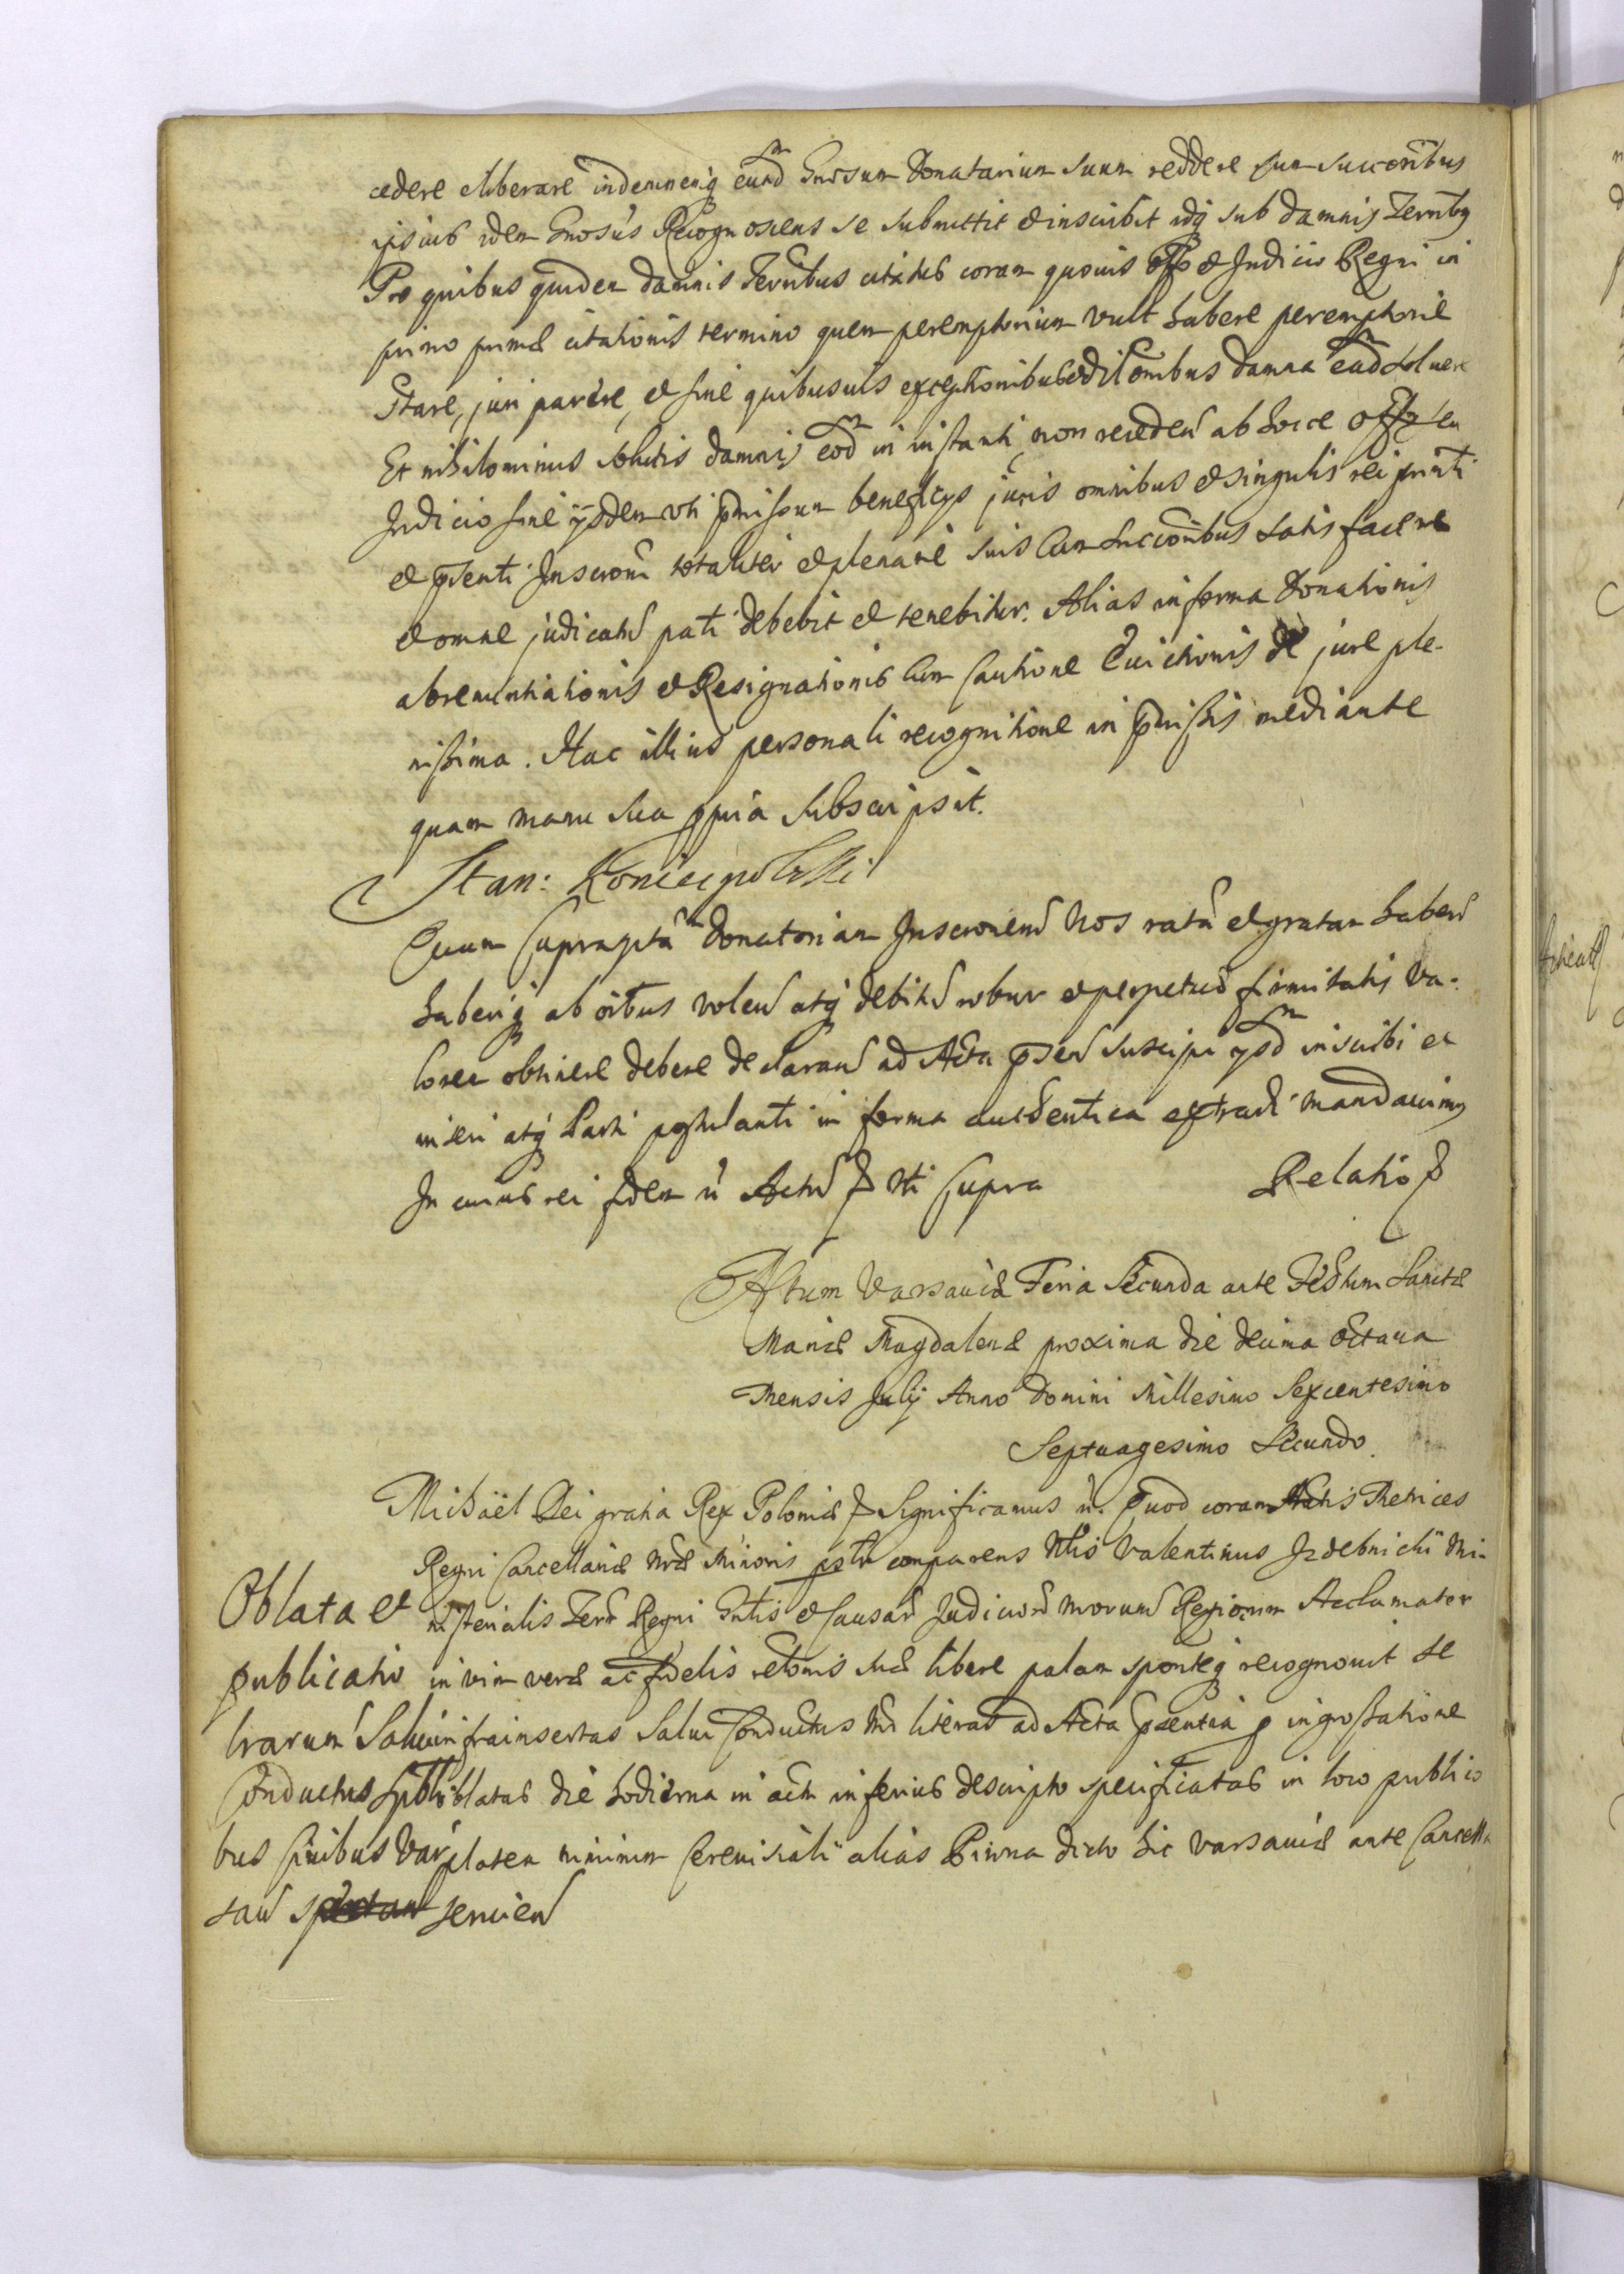 cedere eliberare indemnenq₃ eund Gnosum Donatarium suum reddere cum succoribus
ipsius idem Gnosus Recognoscens se submittit et inscribit idq₃ sub damnis Terribus
Pro quibus quidem damnis Terribus citatus coram quovis offo et Judicio Regni in
primo primæ citationis termino quem peremptorium vult habere peremptorie
Stare, juri parere, et sine quibusvis exceptionibus et dilonibus damna ead solvere
Et nihilominus solutis damnis eod in instanti non recedeń ab hocce offo seu
Judicio sine ysdem uti pmissum beneficys juris omnibus et singulis rei pnti
et psenti Inscroni totaliter et plenarie suis cum succoribus satisfacere
et omne judicatu pati debebit et tenebitur. Alias in forma Donationis
abrenuntiationis et Resignationis cum Cautione Evictionis de jure ple-
nissima. Hac illius personali recognitione in pmissis mediante
quam manu sua ppria subscripsit.
Stan: Koniecpolski
Quam supraptam donatoriam Inscronem Nos ratam et gratam habeń
haberiq₃ ab oibus voleń atq₃ debitu robur et perpetuæ firmitatis va-
lorem obtinere debere declarań ad Acta pseń suscipi ysd inscribi et
inseri atq₃ Parti postulanti in forma authentica extradi mandavimus
In cuius rei fidem ń Actu & uti supra Relatio &
Actum Varsaviæ Feria Secunda ante Festum Sanctæ
Mariæ Magdalenæ proxima die decima octava
Mensis July Anno Domini Millesimo Sexcentesimo
Septuagesimo Secundo
Michaël Dei gratia Rex Poloniæ & Significamus ń. Quod coram Actis Metrices
Regni Cancellariæ nræ Minoris pslr comparens Mtis Valentinus Izdebnicki Mi-
Oblata et nisterialis Terr Regni Gnlis et Causar Judiciorum nrorum Regiorum Acclamator
publicatio in vim veræ ac fidelis relonis suæ libere palam sponteq₃ recognovit se
lrarum Salvi infrainsertas Salvi Conductus literas ad Acta psentia p ingrossatione
Conductus oblatas die hodierna in actu inferius descripto specificatas in loco publico
bus Civibus Var platea cerevisiali alias Piwna dicto hic Varsaviæ ante Cancella
servień